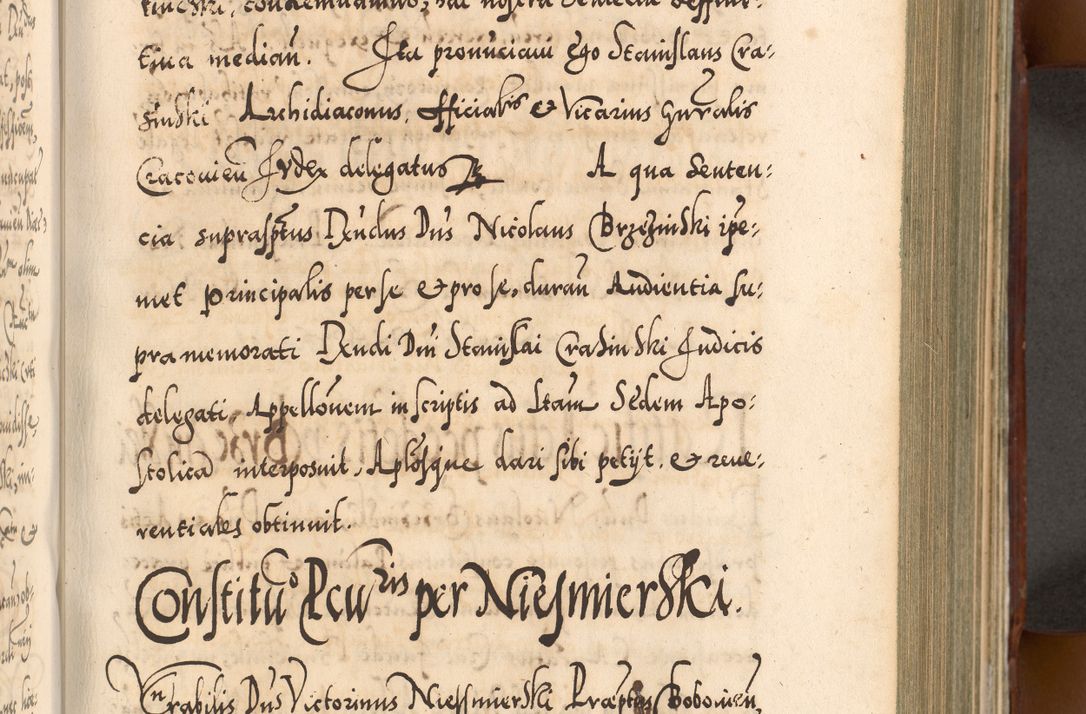 tinenski, condemnamus, hac nostra sententia deffini-
tiua median̄. Ita pronūciaui Ego Stanislaus Cra-
sinski Archidiaconus, Officialis et Vicarius gn̄ralis
Cracouien̄ Judex delegatus A qua senten-
cia suprasp̄tus Vn̄dus Dn̄s Nicolaus Brzezinski ipse-
met principalis per se et pro se, duran̄ Audientia su-
pra memorati Vn̄di Dn̄i Stanislai Crasinski Judicis
delegati, Appellōnem in scriptis ad Stam̄ Sedem Apo-
stolicā interposuit, Aplōsque dari sibi petijt, et reue-
rentiales obtinuit.
Constitū Pcu ris per Niesmierski.
Vn̄rabilis Dn̄s Victorinus Niessmierski Præptus Bobouien̄